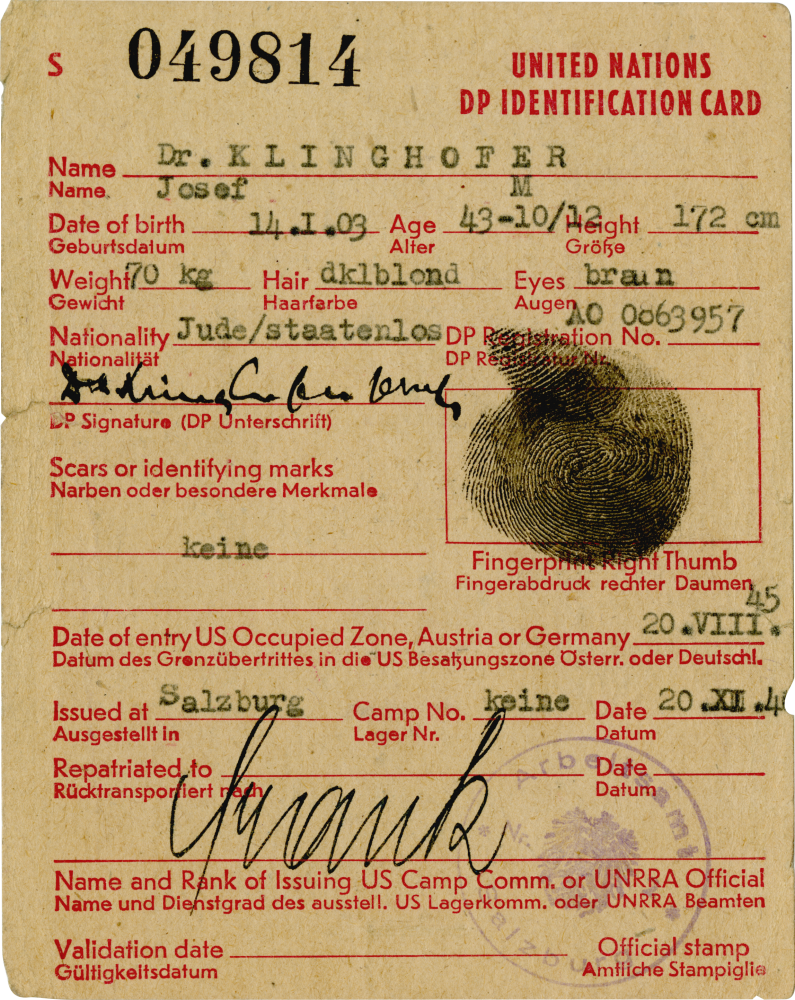 S 049814
UNITED NATIONS
DP IDENTIFICATION CARD
Name Dr. KLINGHOFER
Name. Josef M
Date of birth 14.I.03 Age 43-10/12 Height 172 cm
Geburtsdatum Alter Größe
Weight 70 kg Hair dklblond Eyes braun
Gewicht Haarfarbe Augen
Nationality Jude/staatenlos DP Registration No. AO 0663957
Nationalität DP Registratur Nr.
DP Signature (DP Unterschrift)
Scars or identifying marks
Narben oder besondere Merkmale
keine
Fingerprint Right Thumb
Fingerabdruck rechter Daumen
Date of entry US Occupied Zone, Austria or Germany 20.VIII. 45
Datum des Grenzübertrittes in die US Besatzungszone Österr. oder Deutschl.
Issued at Salzburg Camp No. keine Date 20.XII.4
Ausgestellt in Lager Nr. Datum
Repatriated to Date
Rücktransportiert nach Datum
Arbeitsamt
Nr.
Salzburg
Name and Rank of Issuing US Camp Comm. or UNRRA Official
Name und Dienstgrad des ausstell. US Lagerkomm. oder UNRRA Beamten
Validation date Official stamp
Gültigkeitsdatum Amtliche Stampiglie